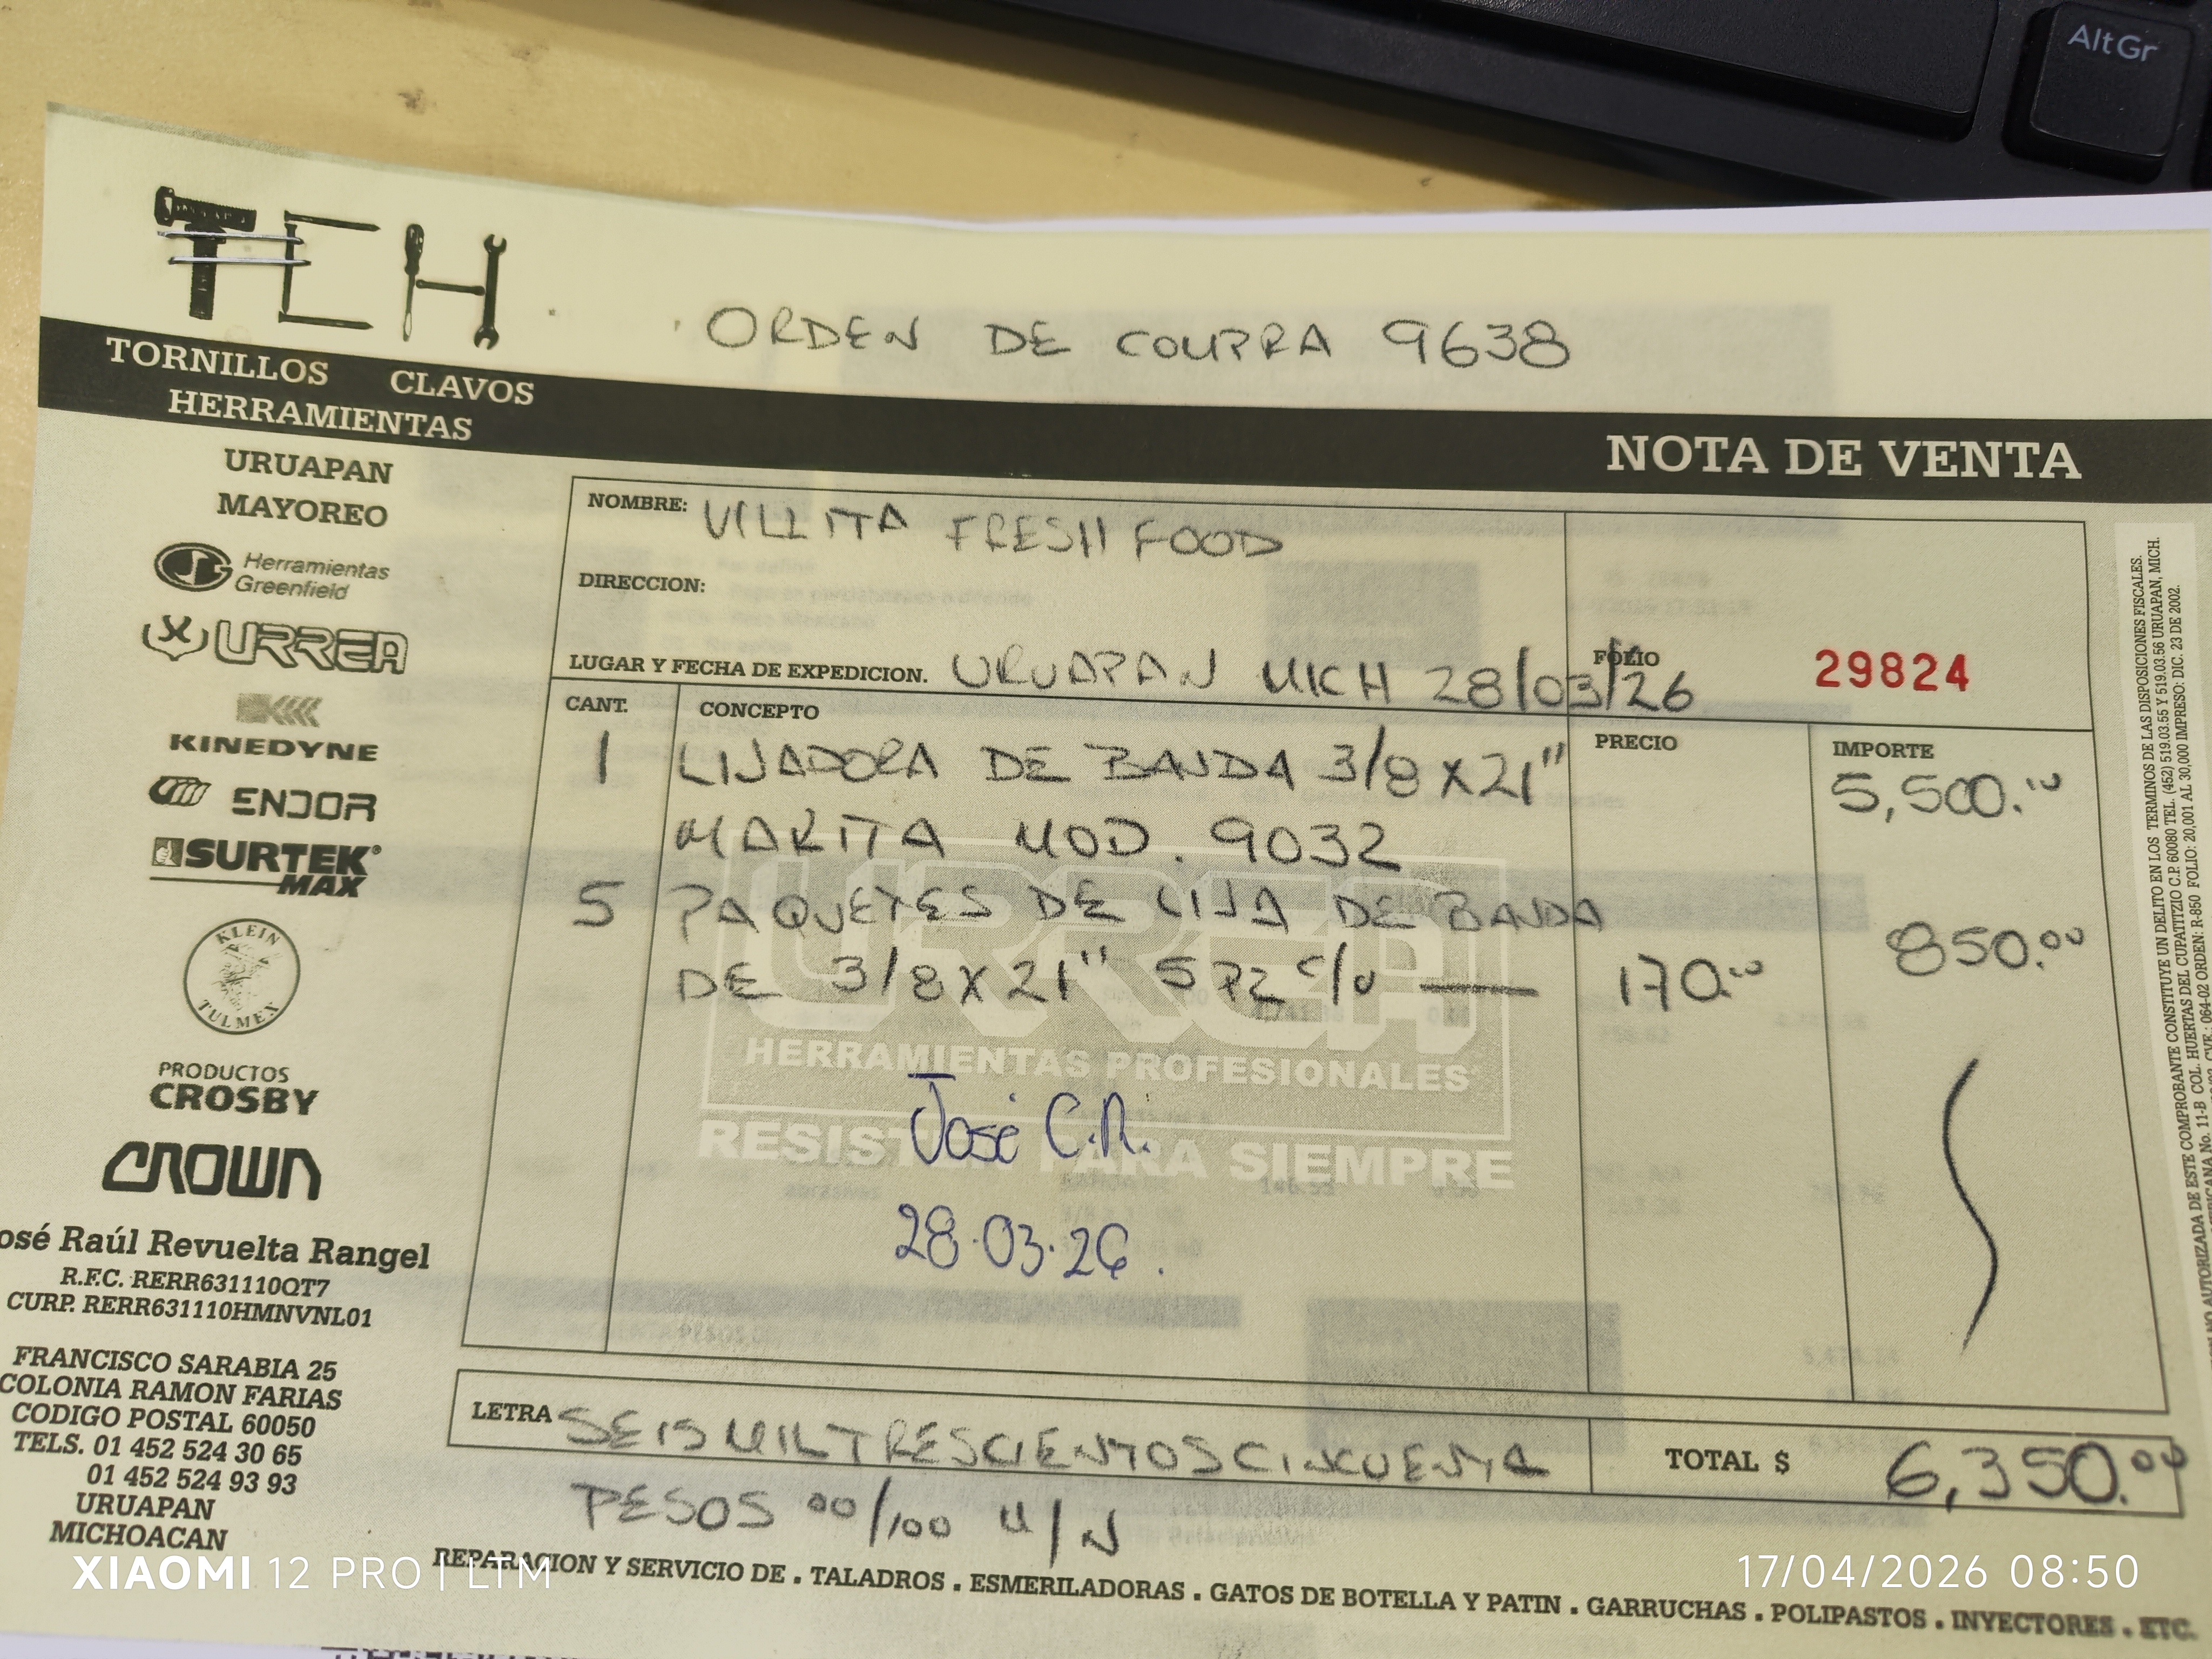 AltGr
TCH
ORDEN DE COMPRA 9638
TORNILLOS CLAVOS
HERRAMIENTAS
NOTA DE VENTA
URUAPAN
MAYOREO
Herramientas
Greenfield
URREA
KINEDYNE
ENDOR
SURTEK®
MAX
KLEIN
TULMEX
PRODUCTOS
CROSBY
CROWN
osé Raúl Revuelta Rangel
R.F.C. RERR631110QT7
CURP. RERR631110HMNVNL01
FRANCISCO SARABIA 25
COLONIA RAMON FARIAS
CODIGO POSTAL 60050
TELS. 01 452 524 30 65
01 452 524 93 93
URUAPAN
MICHOACAN
NOMBRE: VILLITA FRESH FOOD
DIRECCION:
LUGAR Y FECHA DE EXPEDICION. URUAPAN MICH 28/03/26
FOLIO 29824
CANT. CONCEPTO PRECIO IMPORTE
1 LIJADORA DE BANDA 3/8 X 21" 5,500.00
MAKITA MOD. 9032
5 PAQUETES DE LIJA DE BANDA 850.00
DE 3/8 X 21" 5 PZ c/u — 170.00
URREA
HERRAMIENTAS PROFESIONALES
RESISTEN PARA SIEMPRE
José C.R.
28.03.26.
LETRA SEIS MIL TRESCIENTOS CINCUENTA
PESOS 00/100 M/N
TOTAL $ 6,350.00
REPARACION Y SERVICIO DE . TALADROS . ESMERILADORAS . GATOS DE BOTELLA Y PATIN . GARRUCHAS . POLIPASTOS . INYECTORES . ETC.
AUTORIZADA DE ESTE COMPROBANTE CONSTITUYE UN DELITO EN LOS TERMINOS DE LAS DISPOSICIONES FISCALES.
No. 11-B COL. HUERTAS DEL CUPATITZIO C.P. 60080 TEL. (452) 519.03.55 Y 519.03.56 URUAPAN, MICH.
064-02 ORDEN: R-850 FOLIO: 20,001 AL 30,000 IMPRESO: DIC. 23 DE 2002.
XIAOMI 12 PRO | LTM
17/04/2026 08:50